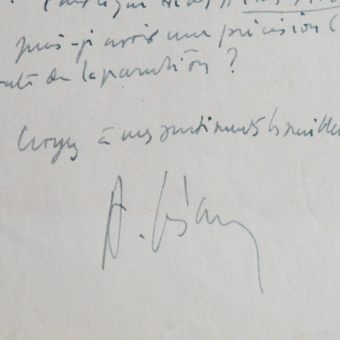 puis-je avoir une précision (
de la parution ?
Croyez à mes sentiments les meilleu
A. Césaire